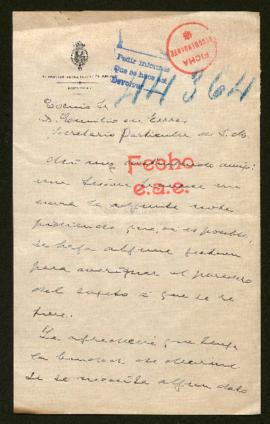 FICHA
Pedir informes
Que se haga así
Devolver
44364
Excmo Sr
D. Emilio de Torres
Secretario Particular de S. M.
Mi muy distinguido amigo:
Fecho
e.a.e.
un
envia la adjunta nota
pidiendo que, si es posible,
se haga alguna gestion
para averiguar el paradero
del sujeto á que se re
fiere.
Le agradeceria que tenga
la bondad de decirme
si se necesita algun dato